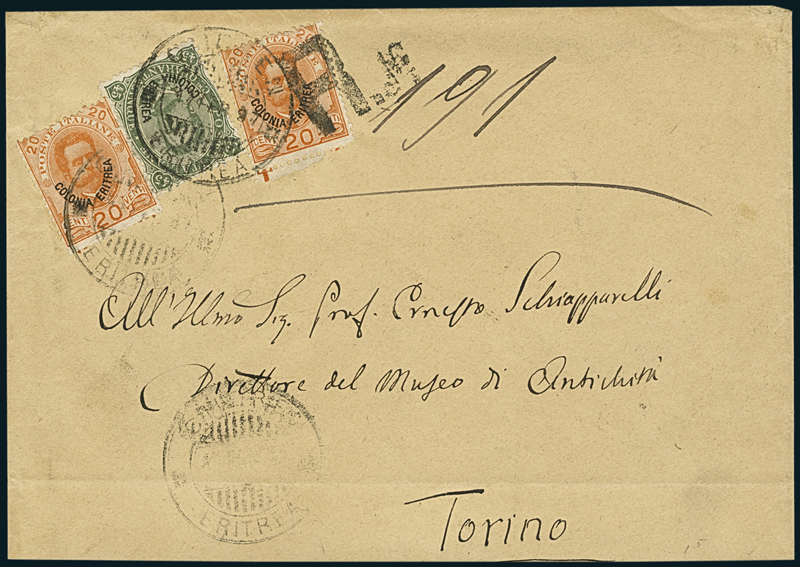 20 20
POSTE ITALIANE
COLONIA ERITREA
20
45 45
COLONIA
ERITREA
20 20
POSTE ITALIANE
COLONIA ERITREA
20
R
191
ERITREA
All'Illmo Sig. Prof. Ernesto Schiapparelli
Direttore del Museo di Antichità
ERITREA
Torino